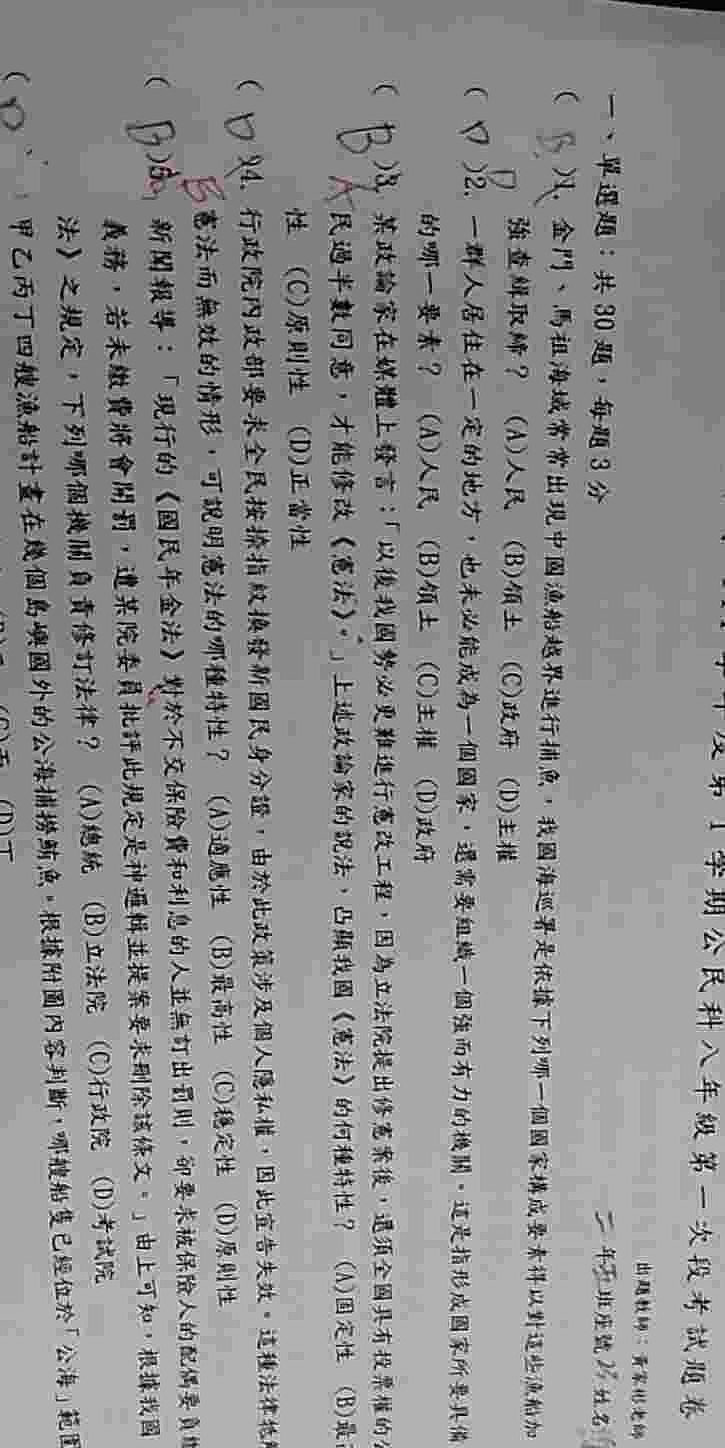 學期公民科八年級第一次段考試題卷
出題教師：黃家彬老師
年 班座號 姓名
一、單選題：共30題，每題3分
( B )1. 金門、馬祖海域常常出現中國漁船越界進行捕魚，我國海巡署是依據下列哪一個國家構成要素得以對這些漁船加
D 強查緝取締？ (A)人民 (B)領土 (C)政府 (D)主權
( D )2. 一群人居住在一定的地方，也未必能成為一個國家，還需要組織一個強而有力的機關。這是指形成國家所要具備
的哪一要素？ (A)人民 (B)領土 (C)主權 (D)政府
( B )3. 某政論家在媒體上發言：「以後我國勢必更難進行憲改工程，因為立法院提出修憲案後，還須全國具有投票權的
A 民過半數同意，才能修改《憲法》。」上述政論家的說法，凸顯我國《憲法》的何種特性？ (A)固定性 (B)最
性 (C)原則性 (D)正當性
( D )4. 行政院內政部要求全民按捺指紋換發新國民身分證，由於此政策涉及個人隱私權，因此宣告失效。這種法律牴
B 憲法而無效的情形，可說明憲法的哪種特性？ (A)適應性 (B)最高性 (C)穩定性 (D)原則性
( B )5. 新聞報導：「現行的《國民年金法》對於不交保險費和利息的人並無訂出罰則，卻要求被保險人的配偶要負
義務，若未繳費將會開罰，遭某院委員批評此規定是神邏輯並提案要求刪除該條文。」由上可知，根據我國
法》之規定，下列哪個機關負責修訂法律？ (A)總統 (B)立法院 (C)行政院 (D)考試院
( D 甲乙丙丁四艘漁船計畫在幾個島嶼國外的公海捕撈鮪魚。根據附圖內容判斷，哪艘船隻已經位於「公海」範圍
(D)丁